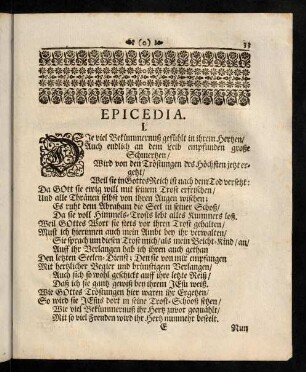 (o) 33
EPICEDIA.
I.
Die viel Bekümmernuß gefühlt in ihrem Hertzen/
Auch endlich an dem Leib empfunden grosse
Schmertzen/
Wird von den Tröstungen des Höchsten jetzt ergetzt/
Weil sie in Gottes Reich ist nach dem Tod versetzt:
Da GOtt sie ewig will mit seinem Trost erfrischen/
Und alle Thränen selbst von ihren Augen wischen:
Es ruht dem Abraham die Seel in seiner Schoß/
Da sie voll Himmels-Trosts lebt alles Kummers loß.
Weil GOttes Wort sie stets vor ihren Trost gehalten/
Must ich hierinnen auch mein Ambt bey ihr verwalten/
Sie sprach um diesen Trost mich/als mein Beicht-Kind/an/
Auff ihr Verlangen hab ich ihnen auch gethan
Den letzten Seelen-Dienst: Den sie von mir empfangen
Mit hertzlicher Begier und brünstigem Verlangen/
Auch sich so wohl geschickt auff ihre letzte Reiß/
Daß ich sie gantz gewiß bey ihrem JEsu weiß.
Wie GOttes Tröstungen hier waren ihr Ergetzen/
So wird sie JEsus dort in seine Trost-Schooß setzen/
Wie viel Bekümmernuß ihr Hertz zuvor gequählt/
Mit so viel Freuden wird ihr Hertz nunmehr beseelt.
E Nun